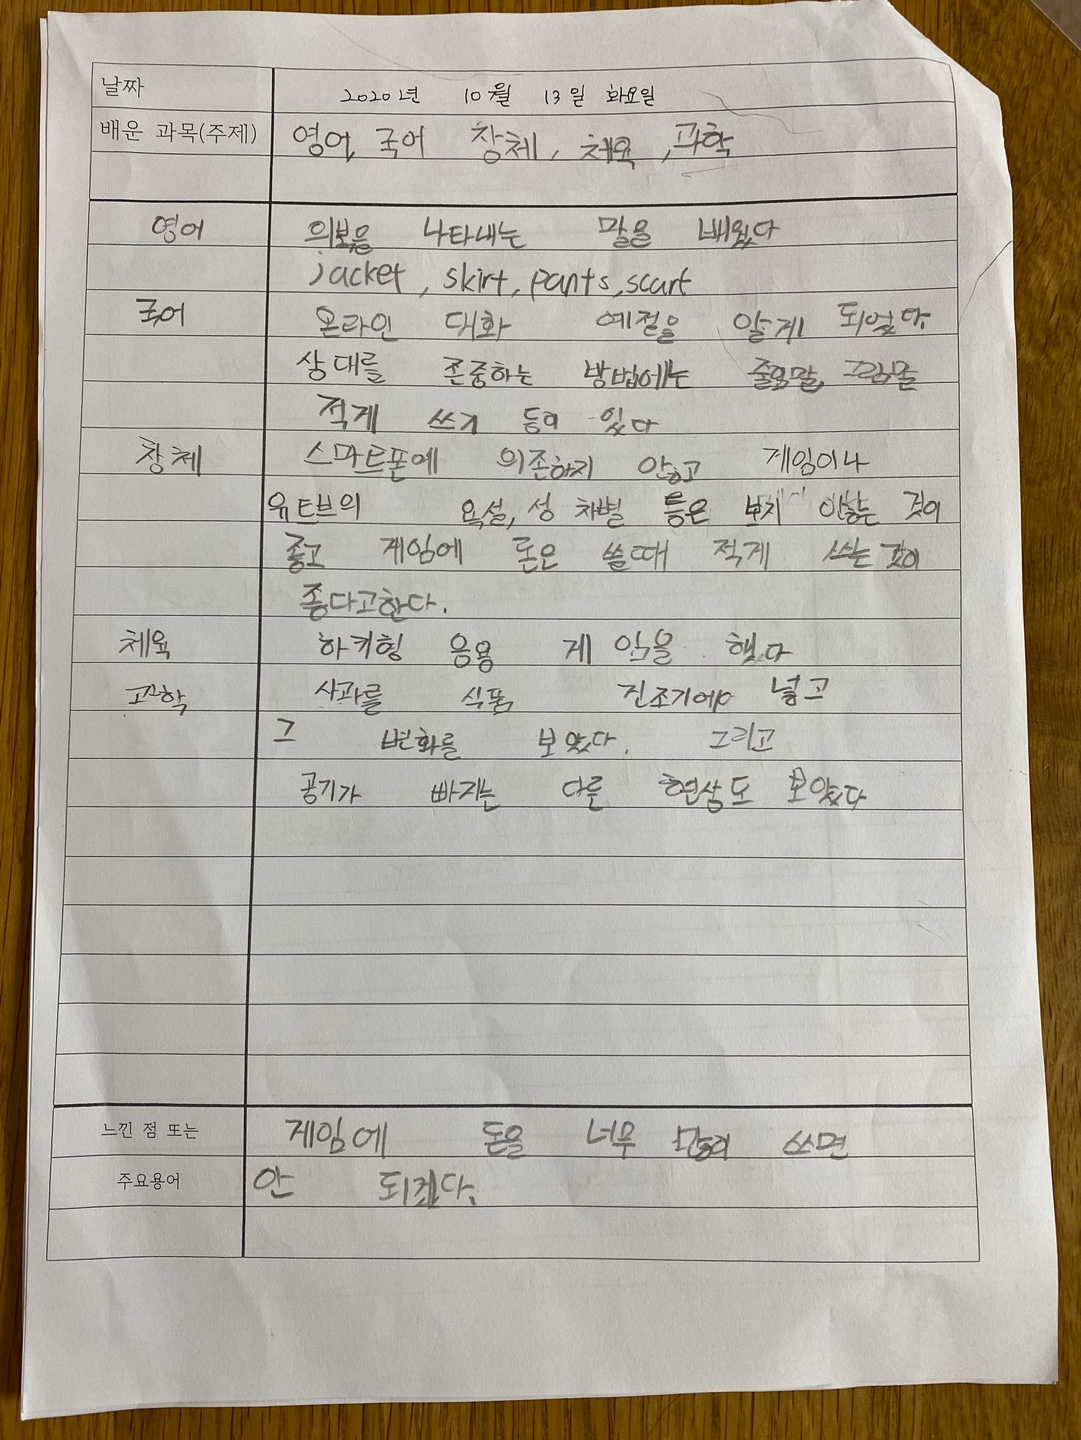 날짜 2020년 10월 13일 화요일
배운 과목(주제) 영어, 국어 창체, 체육, 과학
영어 의복을 나타내는 말을 배웠다
jacket, skirt, pants, scarf
국어 온라인 대화 예절을 알게 되었다.
상대를 존중하는 방법에는 줄임말, 그림말
적게 쓰기 등이 있다
창체 스마트폰에 의존하지 안하고 게임이나
유트브의 욕설, 성 차별 등은 보지 안찮는 것이
좋고 게임에 돈은 쓸때 적게 쓰는 것이
좋다고한다.
체육 하키형 응용 게임을 했다
과학 사과를 식품 진조기에 넣고
그 변화를 보았다. 그리고
공기가 빠지는 다른 현상도 보았다
느낀 점 또는 게임에 돈을 너무 많이 쓰면
주요용어 안 되겠다.